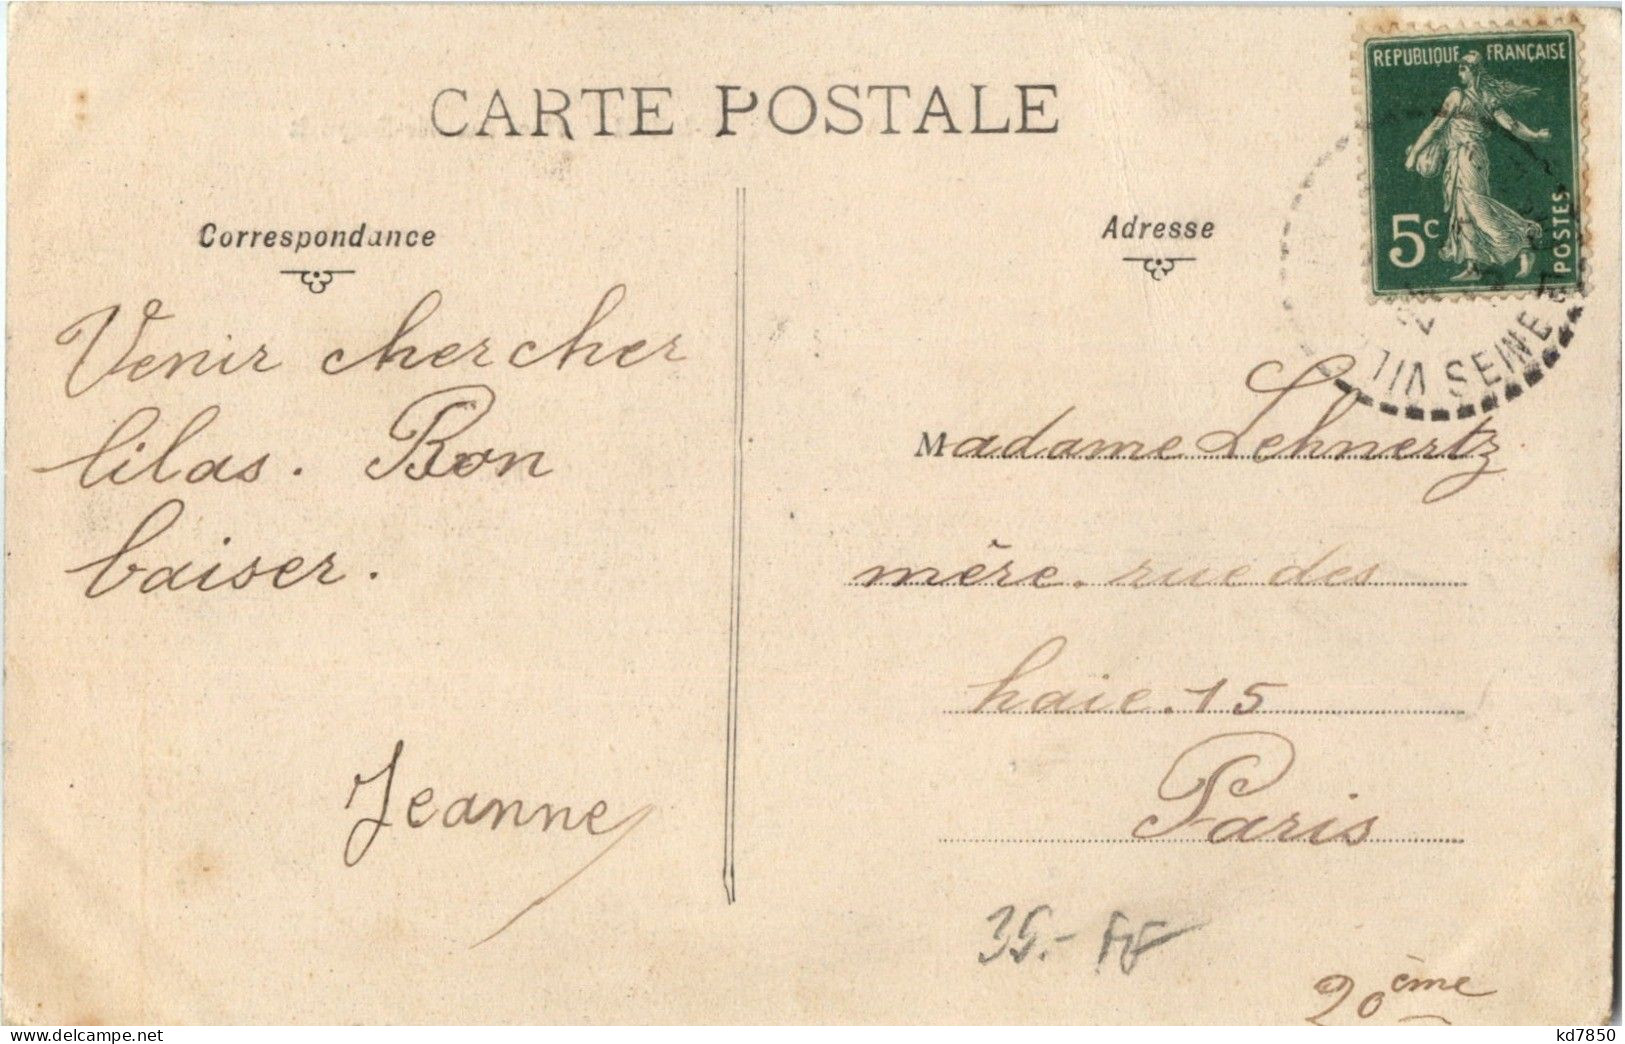 CARTE POSTALE
RÉPUBLIQUE FRANÇAISE
5c
POSTES
SEINE
Correspondance
Venir chercher
lilas. Bon
baiser.
Jeanne
Adresse
Madame Lehnertz
mère. rue des
haie. 15
Paris
35.- FF
20ème
kd7850